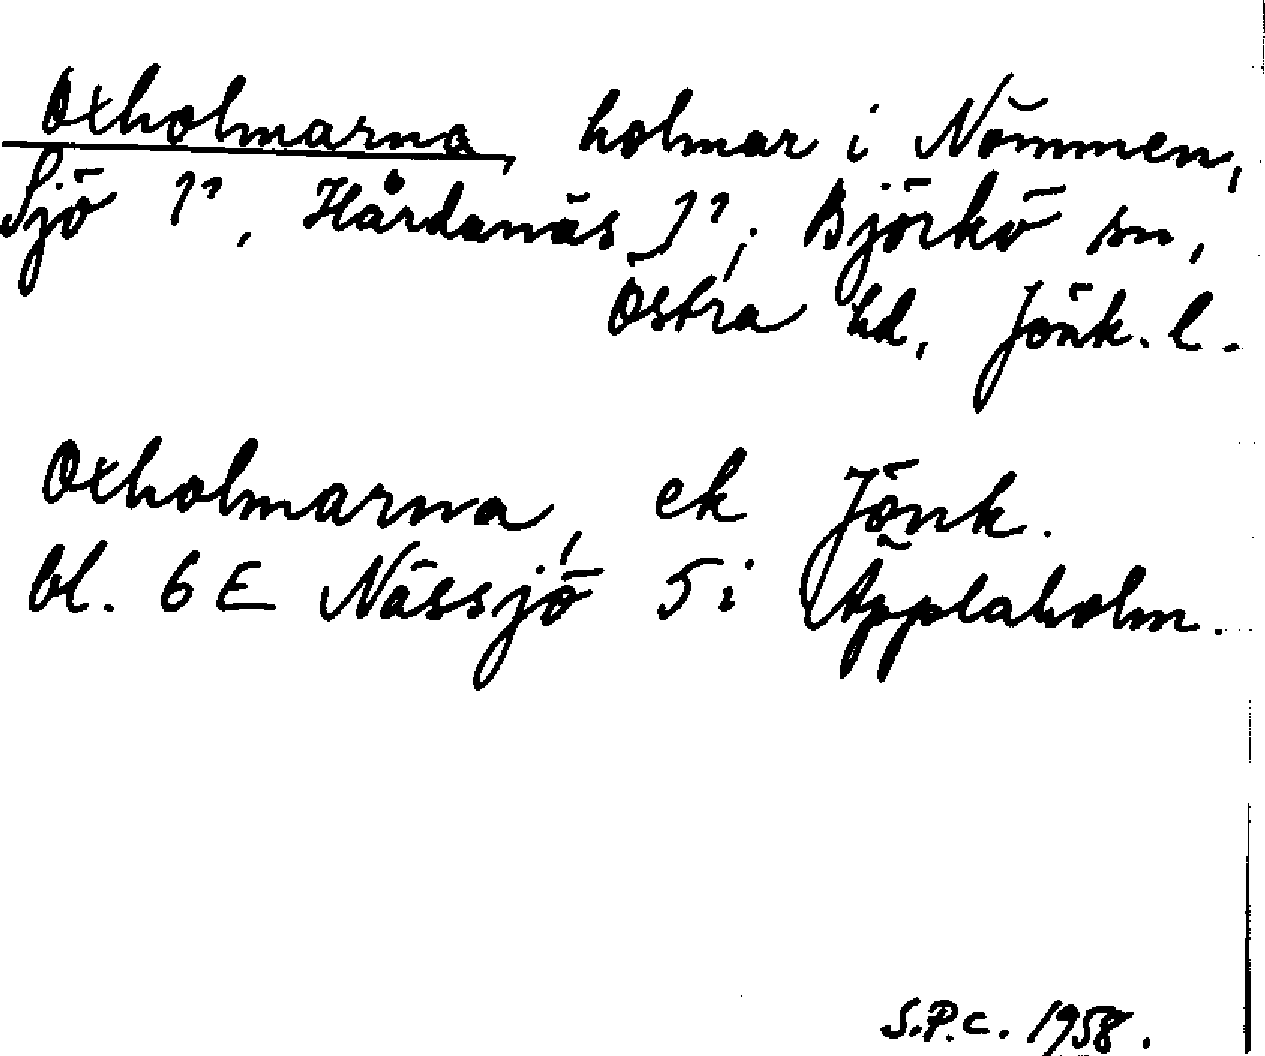 Oxholmarna, holmar i Nömmen,
Sjö 1², Hårdanäs 1²; Björkö sn,
Östra hd, Jönk. l.
Oxholmarna, ek Jönk.
bl. 6 E Nässjö 5 i Äpplaholm.
S.P.C. 1958.